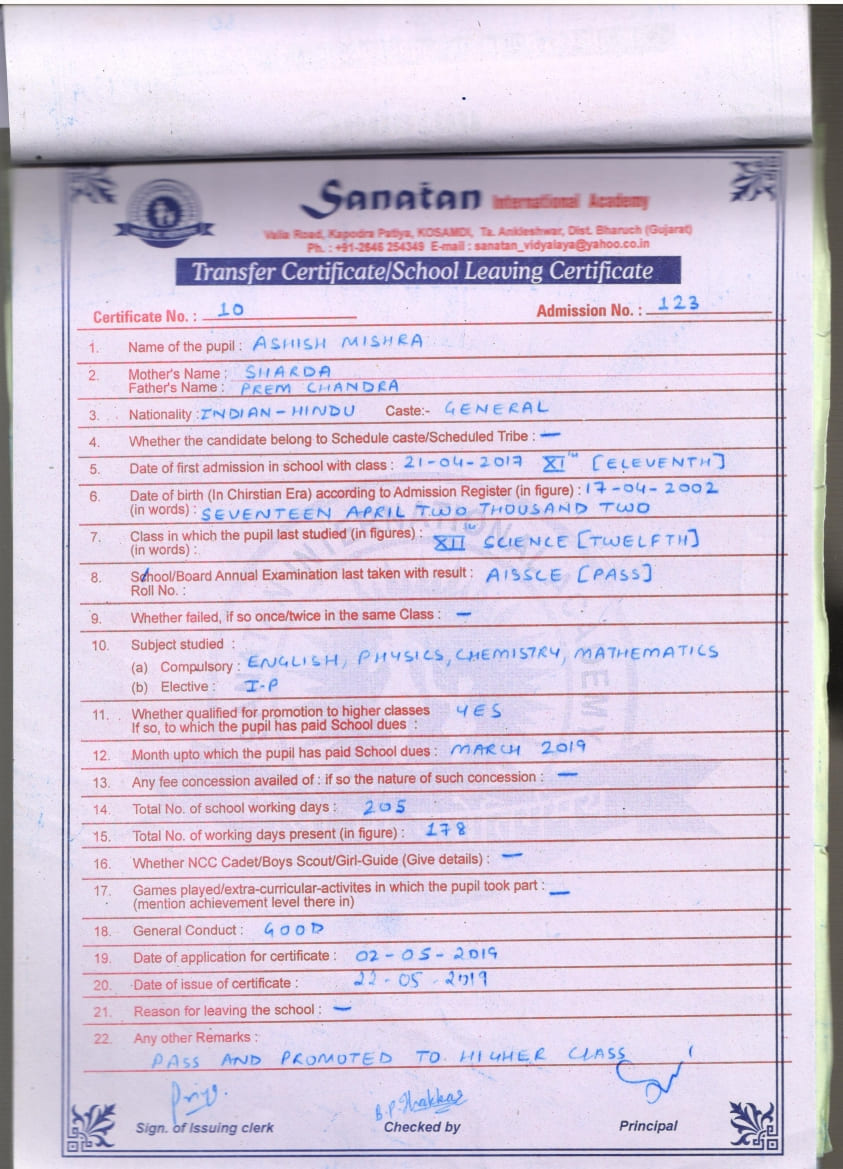 Sanatan International Academy
Valia Road, Kapodra Patiya, KOSAMDI, Ta. Ankleshwar, Dist. Bharuch (Gujarat)
Ph. : +91-2646 254349 E-mail : sanatan_vidyalaya@yahoo.co.in
Transfer Certificate/School Leaving Certificate
Certificate No. : 10 Admission No. : 123
1. Name of the pupil : ASHISH MISHRA
2. Mother's Name : SHARDA
Father's Name : PREM CHANDRA
3. Nationality : INDIAN-HINDU Caste:- GENERAL
4. Whether the candidate belong to Schedule caste/Scheduled Tribe : —
5. Date of first admission in school with class : 21-04-2017 XITH [ELEVENTH]
6. Date of birth (In Chirstian Era) according to Admission Register (in figure) : 17-04-2002
(in words) : SEVENTEEN APRIL TWO THOUSAND TWO
7. Class in which the pupil last studied (in figures) : XIITH SCIENCE [TWELFTH]
(in words) :
8. School/Board Annual Examination last taken with result : AISSCE [PASS]
Roll No. :
9. Whether failed, if so once/twice in the same Class : —
10. Subject studied :
(a) Compulsory : ENGLISH, PHYSICS, CHEMISTRY, MATHEMATICS
(b) Elective : I-P
11. Whether qualified for promotion to higher classes YES
If so, to which the pupil has paid School dues :
12. Month upto which the pupil has paid School dues : MARCH 2019
13. Any fee concession availed of : if so the nature of such concession : —
14. Total No. of school working days : 205
15. Total No. of working days present (in figure) : 178
16. Whether NCC Cadet/Boys Scout/Girl-Guide (Give details) : —
17. Games played/extra-curricular-activites in which the pupil took part : —
(mention achievement level there in)
18. General Conduct : GOOD
19. Date of application for certificate : 02-05-2019
20. Date of issue of certificate : 22-05-2019
21. Reason for leaving the school : —
22. Any other Remarks :
PASS AND PROMOTED TO HIGHER CLASS
B.P. Thakkar
Sign. of Issuing clerk Checked by Principal